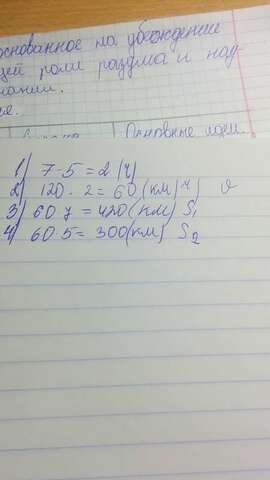 основанное на убеждении
щей роли разума и нау-
знании.
Основные идеи.
1) 7-5=2 (ч)
2) 120 : 2 = 60 (км/ч) v
3) 60·7 = 420 (км) S1
4) 60·5 = 300 (км) S2